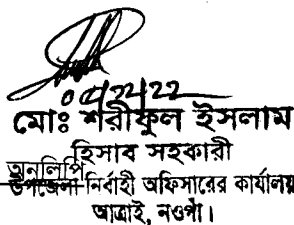 মোঃ শরীফুল ইসলাম
হিসাব সহকারী
অনুলিপি
উপজেলা নির্বাহী অফিসারের কার্যালয়
আত্রাই, নওগাঁ।